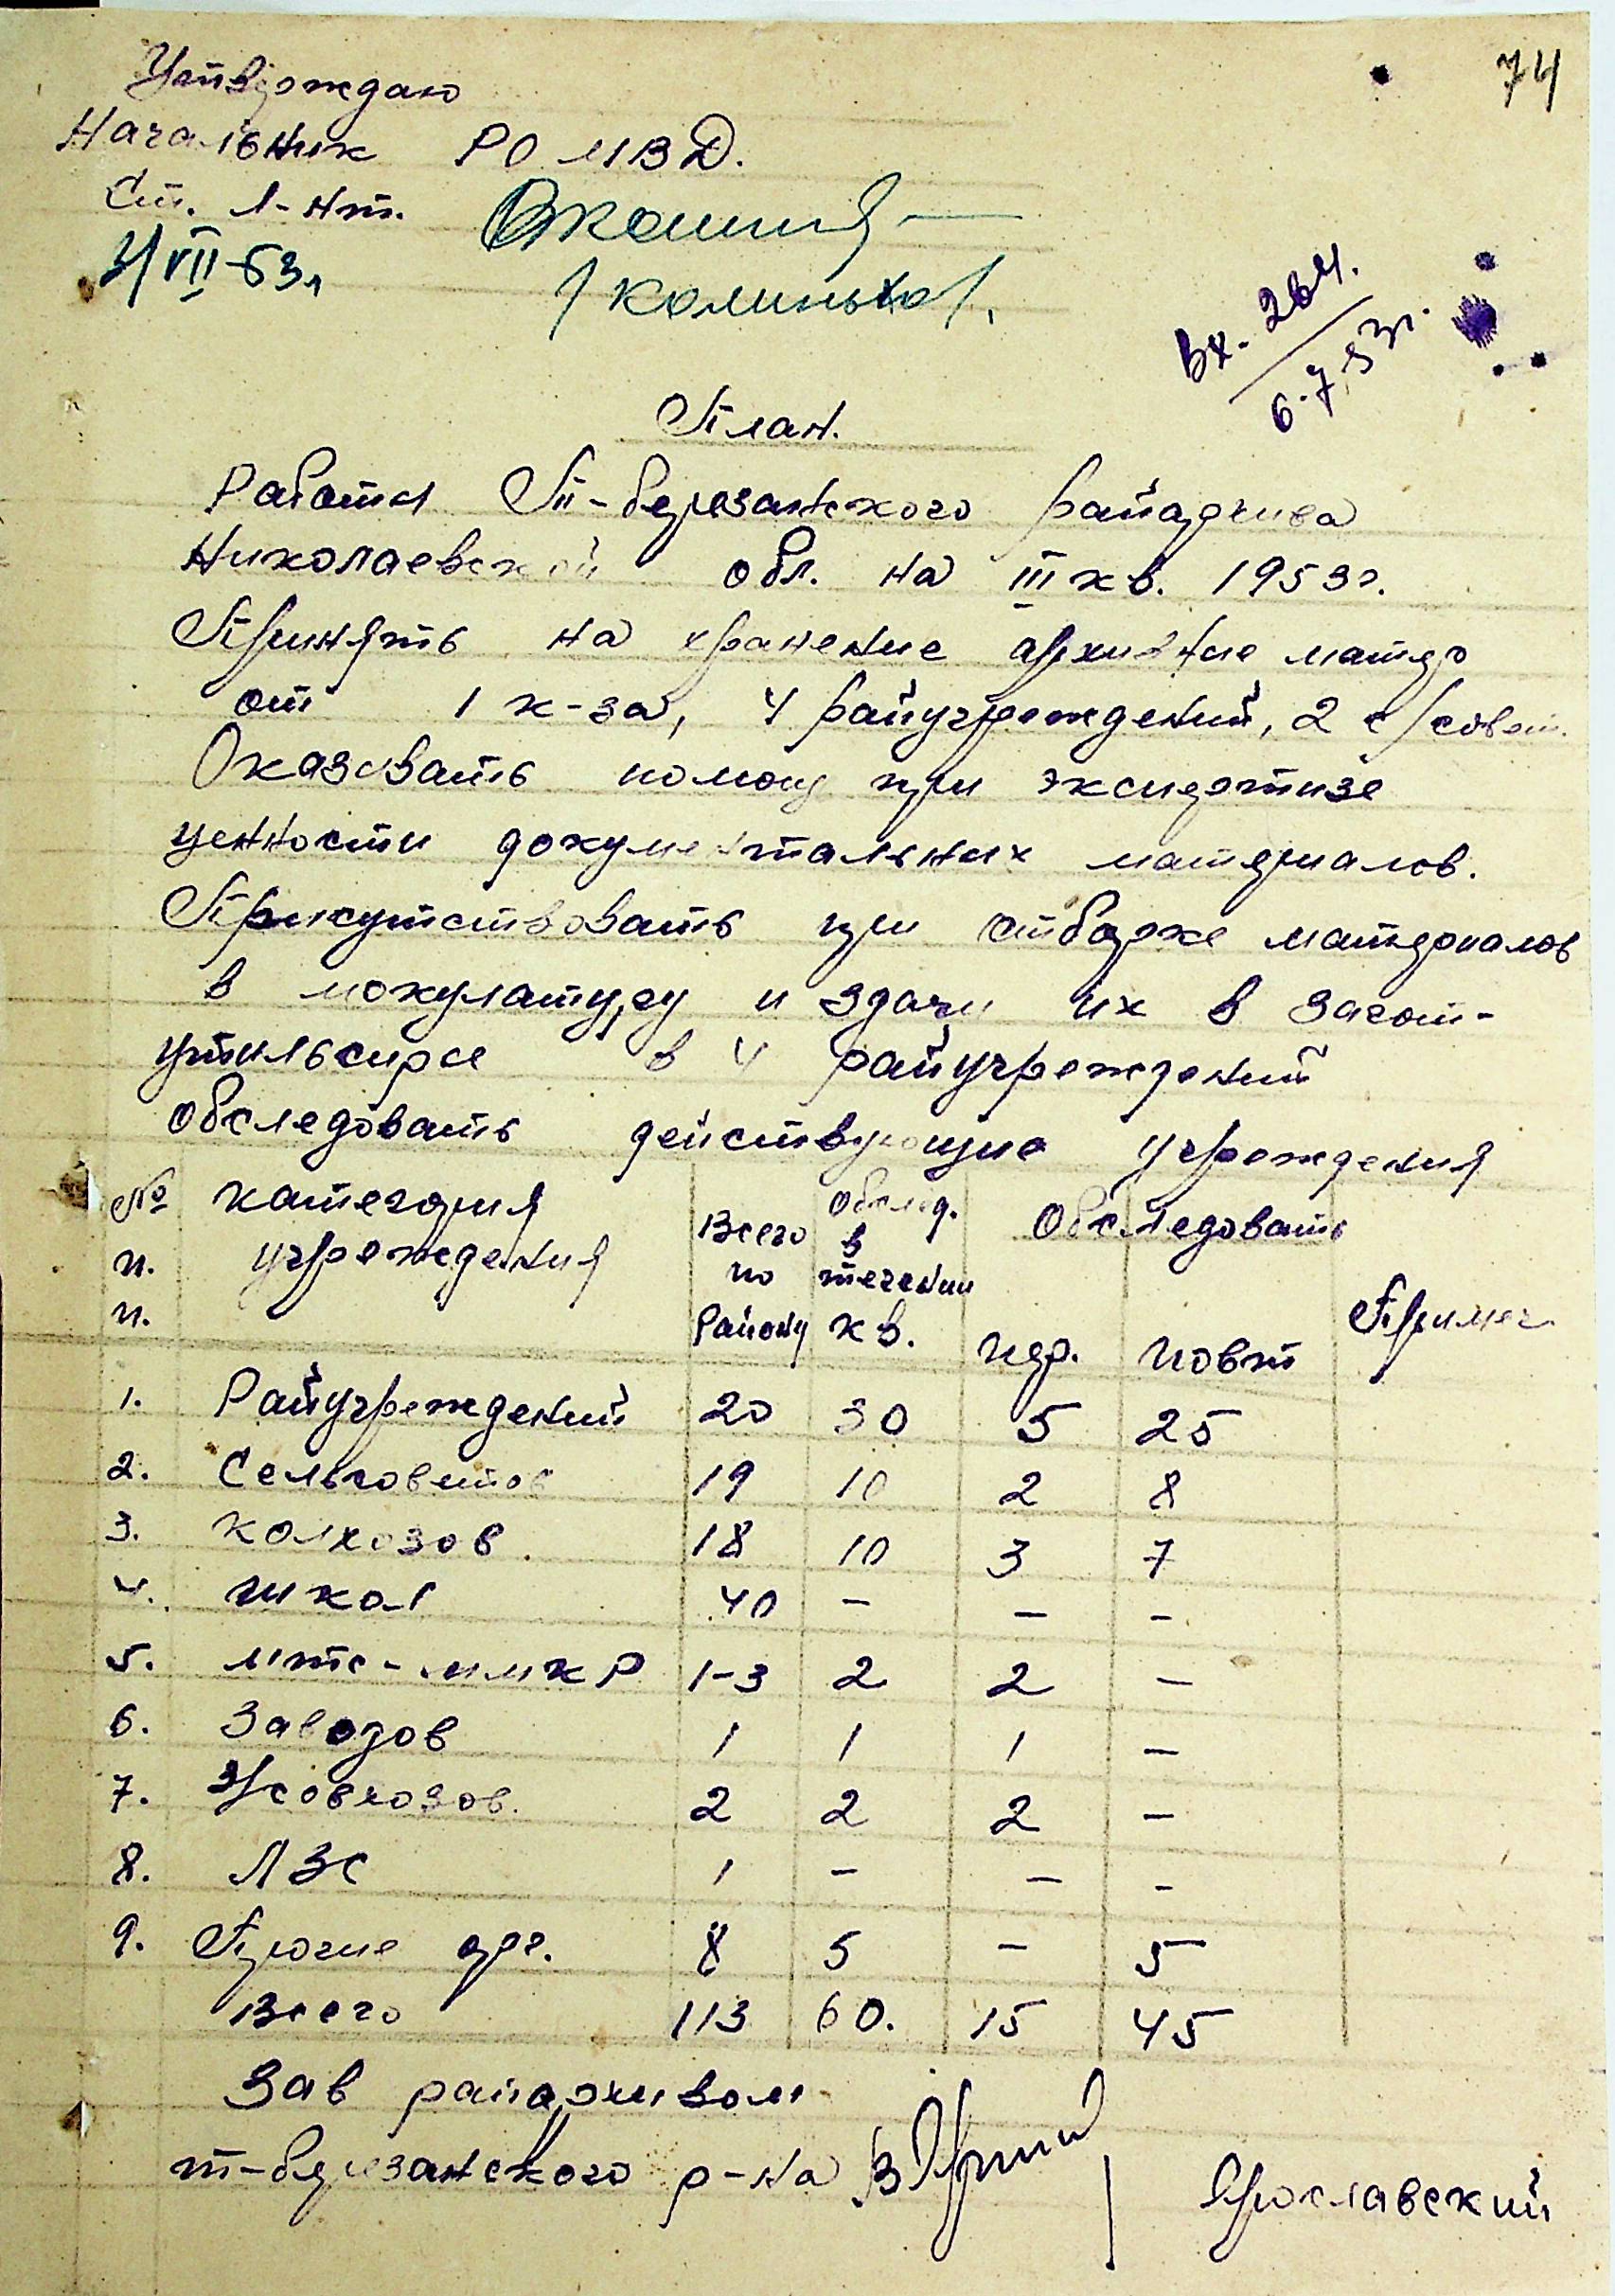 74
Утверждаю
Начальник РО МВД.
Ст. л-нт.
4/VII-53г
/Калинько/.
Вх. 264.
6.7.53г.
План.
Работы Т-березанского райархива
Николаевской обл. на III кв. 1953г.
Принять на хранение архивные матер
от 1 к-за, 4 райучреждений, 2 с/совет.
Оказывать помощ при экспертизе
ценности документальных материалов.
Присутствовать при отборке материалов
в мокулатуру и здачи их в загот-
утильсирье в 4 райучреждений
Обследовать действующие учреждения
№ п. п. категория учреждения Всего по району Обслед. в течении кв. Обследовать пер. повт Примеч
1. Райучреждений 20 30 5 25
2. Сельсоветов 19 10 2 8
3. колхозов 18 10 3 7
4. школ 40 – – –
5. мтс - ммк Р 1-3 2 2 –
6. Заводов 1 1 1 –
7. З/совхозов. 2 2 2 –
8. ЛЗС 1 – – –
9. Прочие орг. 8 5 – 5
Всего 113 60. 15 45
Зав райархивом
т-березанского р-на Ярославский